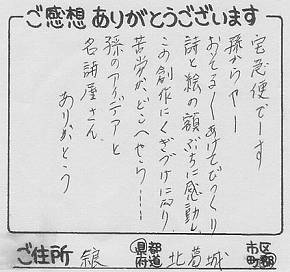 ご感想ありがとうございます
宅急便でーす
孫からやー
おそるおそるあけてびっくり
詩と絵の額ぶちに感動し
この創作にくぎづけになり
苦労が、どこへやら……
孫のアイデアと
名詩屋さん
ありがとう
ご住所 県都府道 北葛城 市区町郡